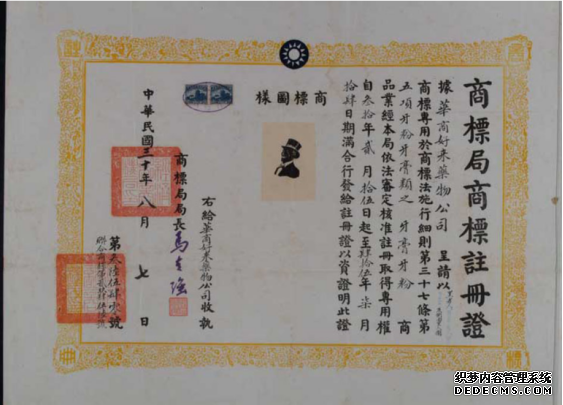 商標局商標註冊證
據華商好來藥物公司 呈請以
商標專用於商標法施行細則第三十七條第
五項牙粉牙膏類之 牙膏牙粉 商
品業經本局依法審定核准註冊取得專用權
自叁拾年貳月拾伍日起至肆拾伍年柒月
拾肆日期滿合行發給註冊證以資證明此證
商標圖樣
右給華商好來藥物公司收執
商標局局長
中華民國三十年八月七日
第叁陸伍肆 號
织梦内容管理系统
DEDECMS.COM